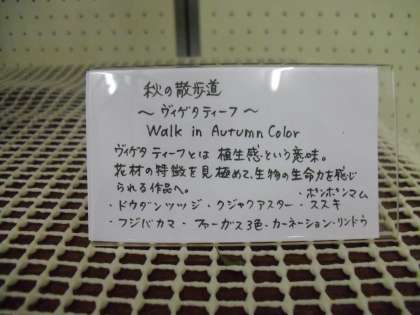 秋の散歩道
～ヴィゲタティーフ～
Walk in Autumn Color
ヴィゲタティーフとは 植生感という意味。
花材の特徴を見極めて、生物の生命力を感じ
られる作品へ。
・ポンポンマム
・ドウダンツツジ・クジャクアスター・ススキ
・フジバカマ・ファーガス3色・カーネーション・リンドウ